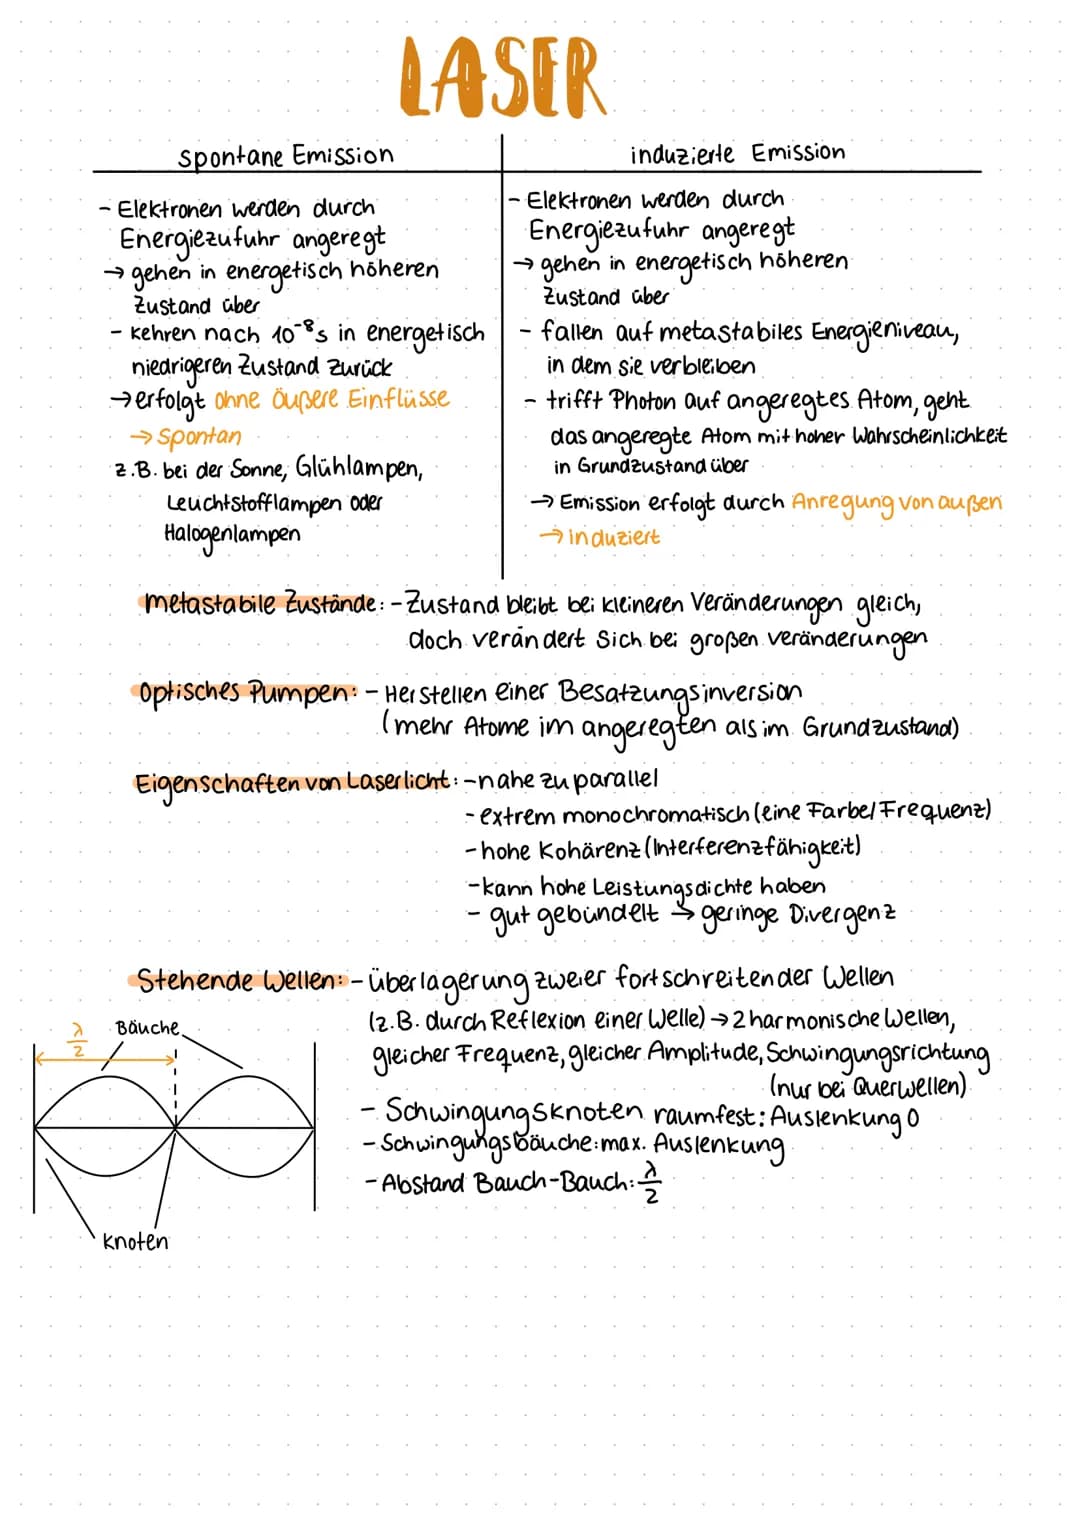 LASER
spontane Emission
induzierte Emission
- Elektronen werden durch
Energiezufuhr angeregt
→ gehen in energetisch höheren
Zustand über
- kehren nach 10⁻⁸s in energetisch
niedrigeren Zustand zurück
→ erfolgt ohne Äußere Einflüsse
→ Spontan
z.B. bei der Sonne, Glühlampen,
Leuchtstofflampen oder
Halogenlampen
- Elektronen werden durch
Energiezufuhr angeregt
→ gehen in energetisch höheren
Zustand über
- fallen auf metastabiles Energieniveau,
in dem sie verbleiben
- trifft Photon auf angeregtes Atom, geht
das angeregte Atom mit hoher Wahrscheinlichkeit
in Grundzustand über
→ Emission erfolgt durch Anregung von außen
→ induziert
metastabile Zustände: - Zustand bleibt bei kleineren Veränderungen gleich,
doch verändert sich bei großen veränderungen
Optisches Pumpen: - Herstellen einer Besatzungsinversion
(mehr Atome im angeregten als im Grundzustand)
Eigenschaften von Laserlicht: - nahe zu parallel
- extrem monochromatisch (eine Farbe/Frequenz)
- hohe Kohärenz (Interferenzfähigkeit)
- kann hohe Leistungsdichte haben
- gut gebündelt → geringe Divergenz
Stehende Wellen: - überlagerung zweier fortschreitender Wellen
(z.B. durch Reflexion einer Welle) → 2 harmonische Wellen,
gleicher Frequenz, gleicher Amplitude, Schwingungsrichtung
(nur bei Querwellen)
- Schwingungsknoten raumfest: Auslenkung 0
- Schwingungsbäuche: max. Auslenkung
- Abstand Bauch-Bauch: λ/2
λ/2
Bäuche
Knoten